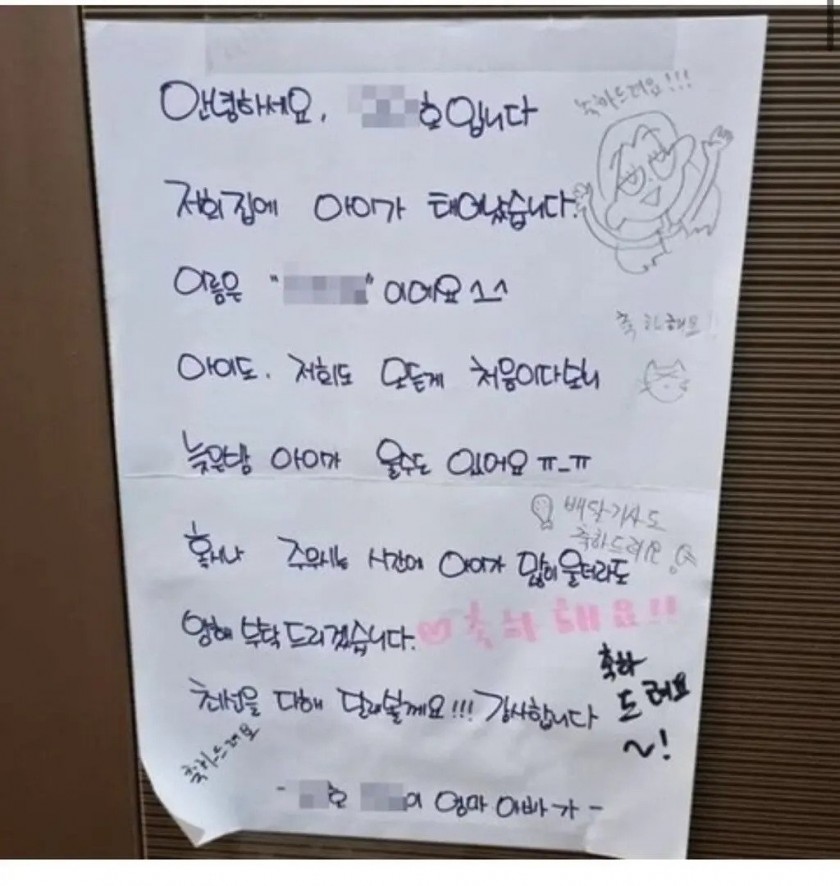 안녕하세요, 호입니다
축하드려요!!!
저희집에 아이가 태어났습니다.
이름은 " " 이에요 ^_^
축하해요!!
아이도, 저희도 모든게 처음이다보니
늦은밤 아이가 울수도 있어요 ㅠ_ㅠ
배달기사도
축하드려요
혹시나 주무시는 시간에 아이가 많이 울더라도
양해 부탁드리겠습니다.
♡축하해요!!
최선을 다해 달래볼게요!!! 감사합니다
축하
드려요
~!
축하드려요
- 호 이 엄마 아빠가 -